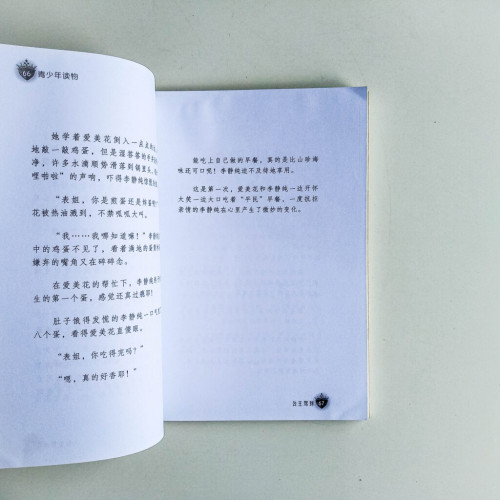 66 青少年读物
她学着爱美花倒入一点点
地敲一敲鸡蛋，但是湿答答的手
净，许多水滴顺势滑落到锅里头，
哩啪啦”的声响，吓得李静纯
“表姐，你是煎蛋还是
花被热油溅到，不禁呱呱大叫
“我……我哪知道嘛！”李静纯
中的鸡蛋不见了，看着满地的蛋
嫌弃的嘴角又在碎碎念。
在爱美花的帮忙下，李静纯
生的第一个蛋，感觉还真过瘾耶！
肚子饿得发慌的李静纯一口
八个蛋，看得爱美花直傻眼。
“表姐，你吃得完吗？”
“嗯，真的好香耶！”
能吃上自己做的早餐，真的是比山珍海
味还可口呢！李静纯迫不及待地享用。
这是第一次，爱美花和李静纯一边开怀
大笑一边大口吃着“平民”早餐，一度抗拒
亲情的李静纯在心里产生了微妙的变化。
67